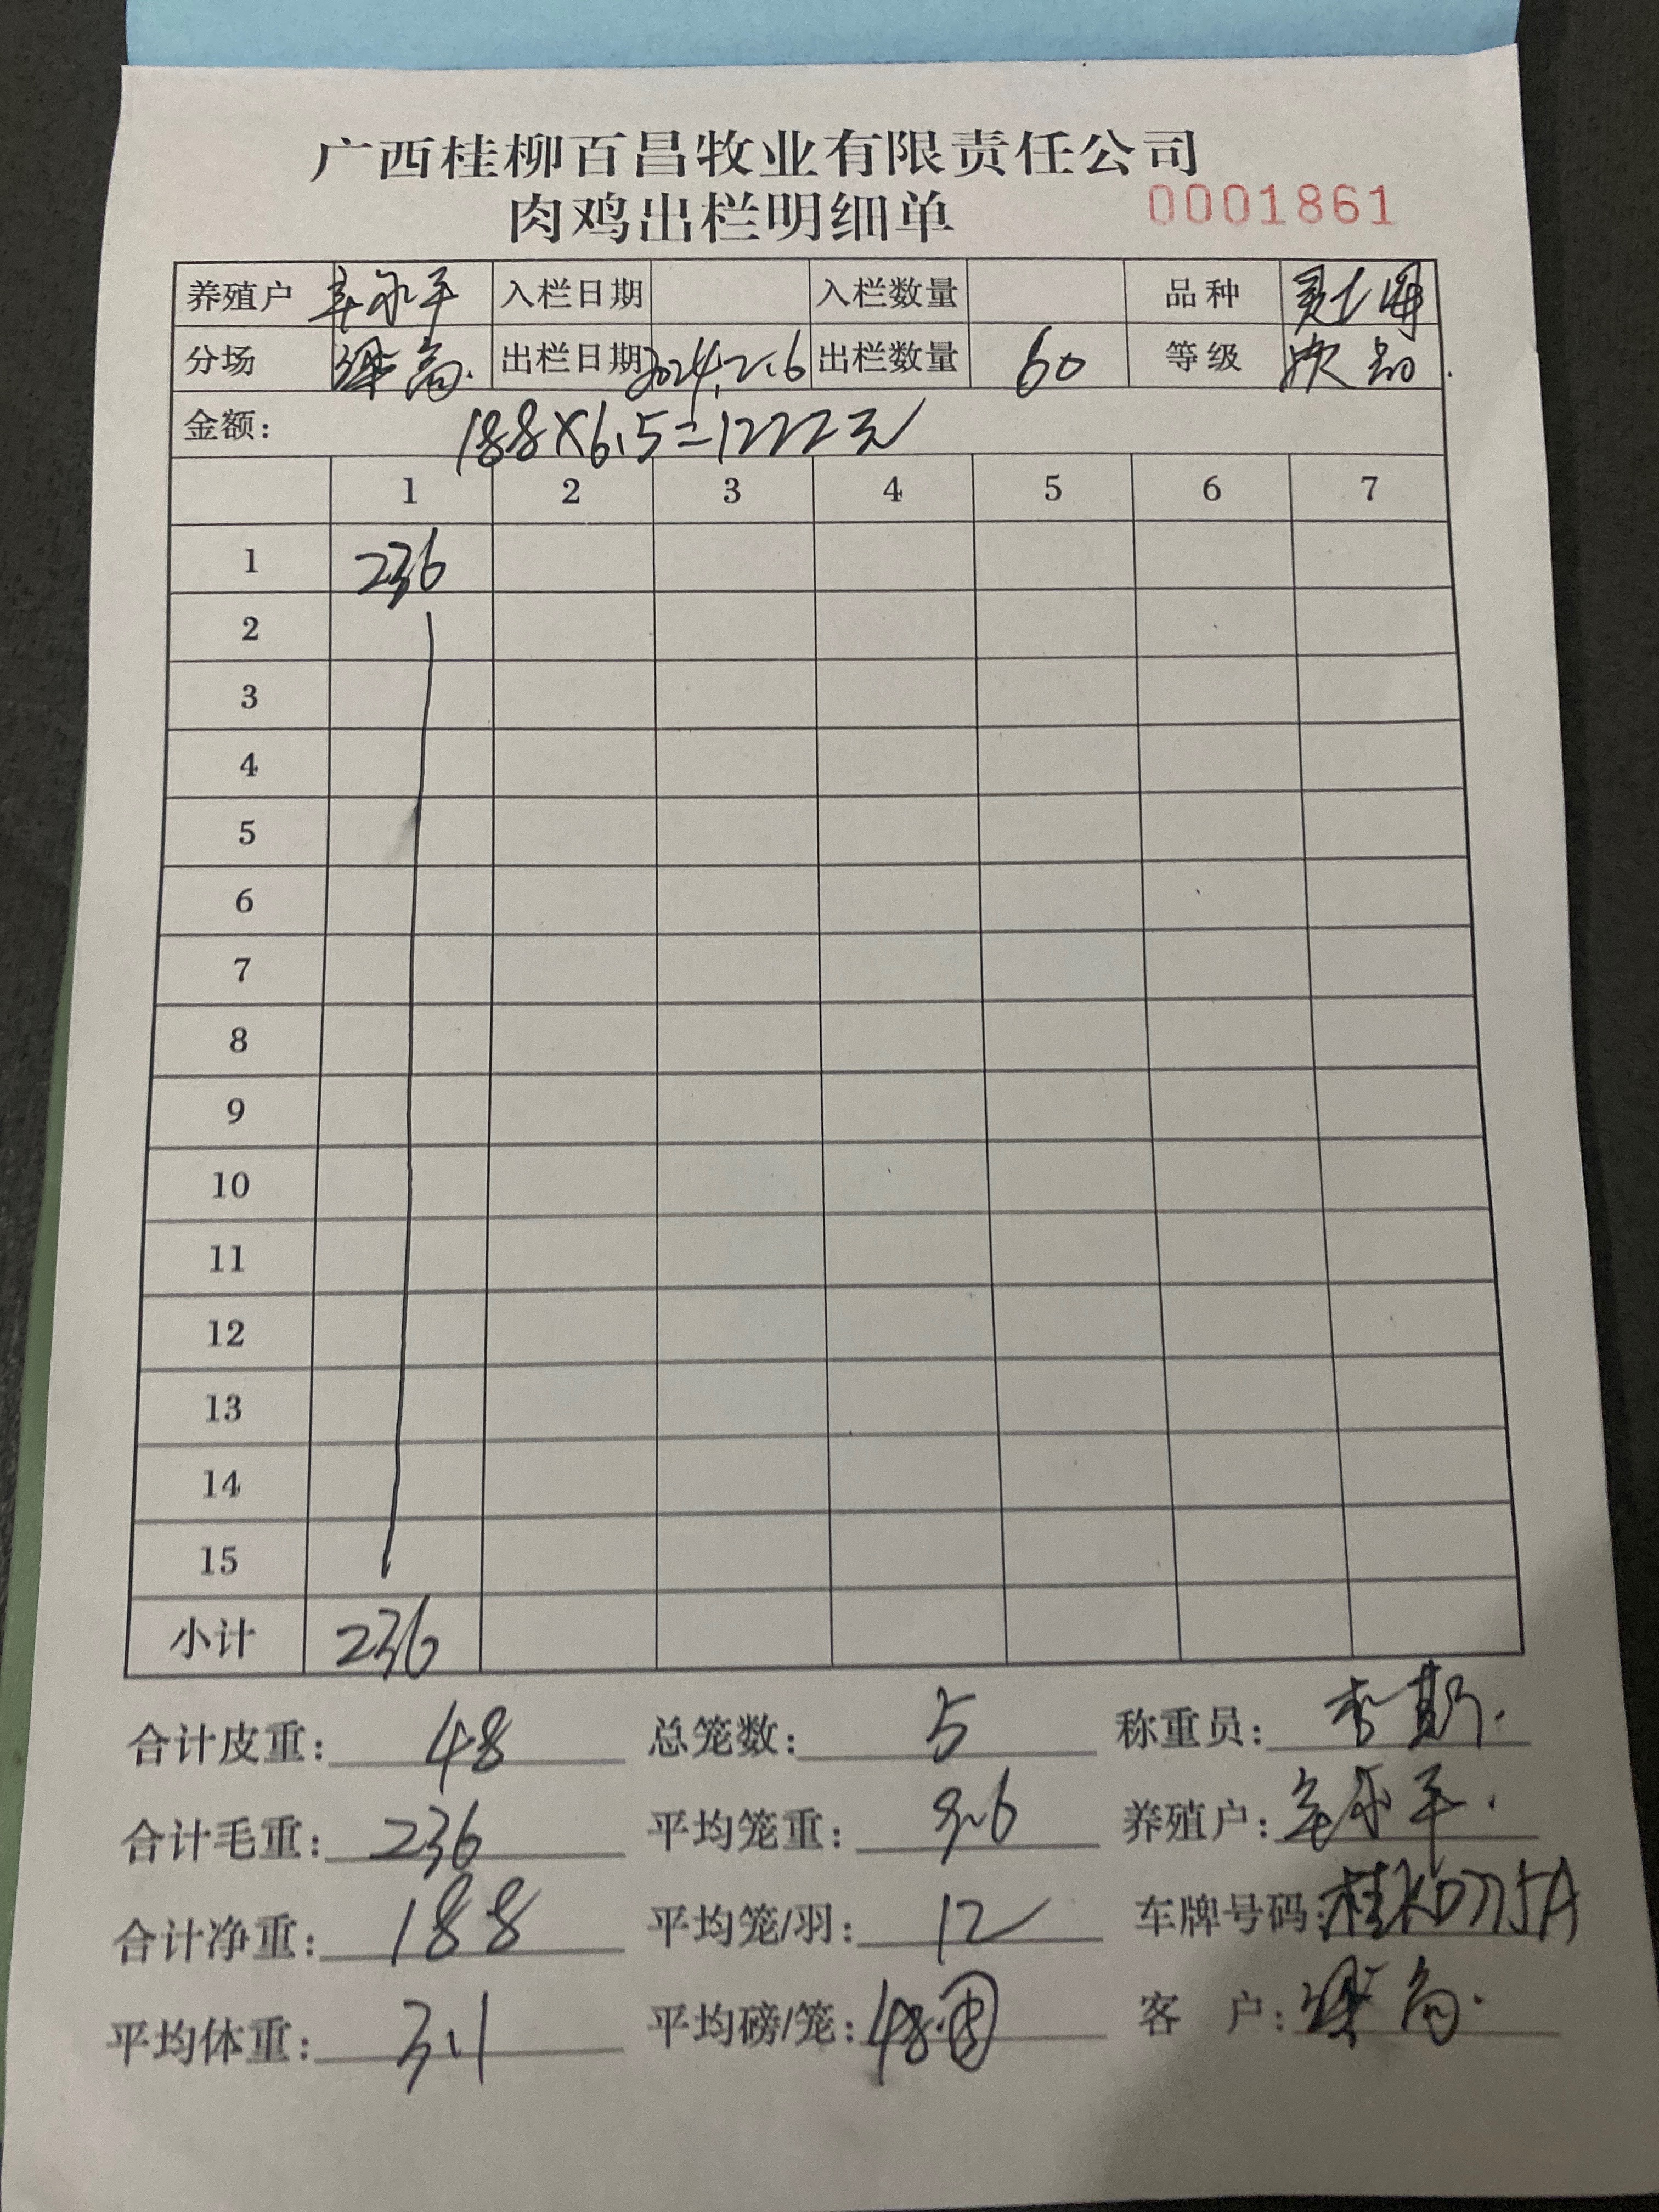 广西桂柳百昌牧业有限责任公司
肉鸡出栏明细单 0001861
养殖户 永平 入栏日期 入栏数量 品种
分场 出栏日期 2024.2.6 出栏数量 60 等级 次
金额: 188×6.5=1222元
1 2 3 4 5 6 7
1 236
2
3
4
5
6
7
8
9
10
11
12
13
14
15
小计 236
合计皮重: 48 总笼数: 5 称重员: 李斯.
合计毛重: 236 平均笼重: 9.6 养殖户: 永平.
合计净重: 188 平均笼/羽: 12 车牌号码: 桂KD775A
平均体重: 3.1 平均磅/笼: 48 客 户: